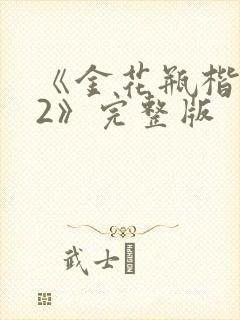 《金花瓶楷
2》完整版
武士